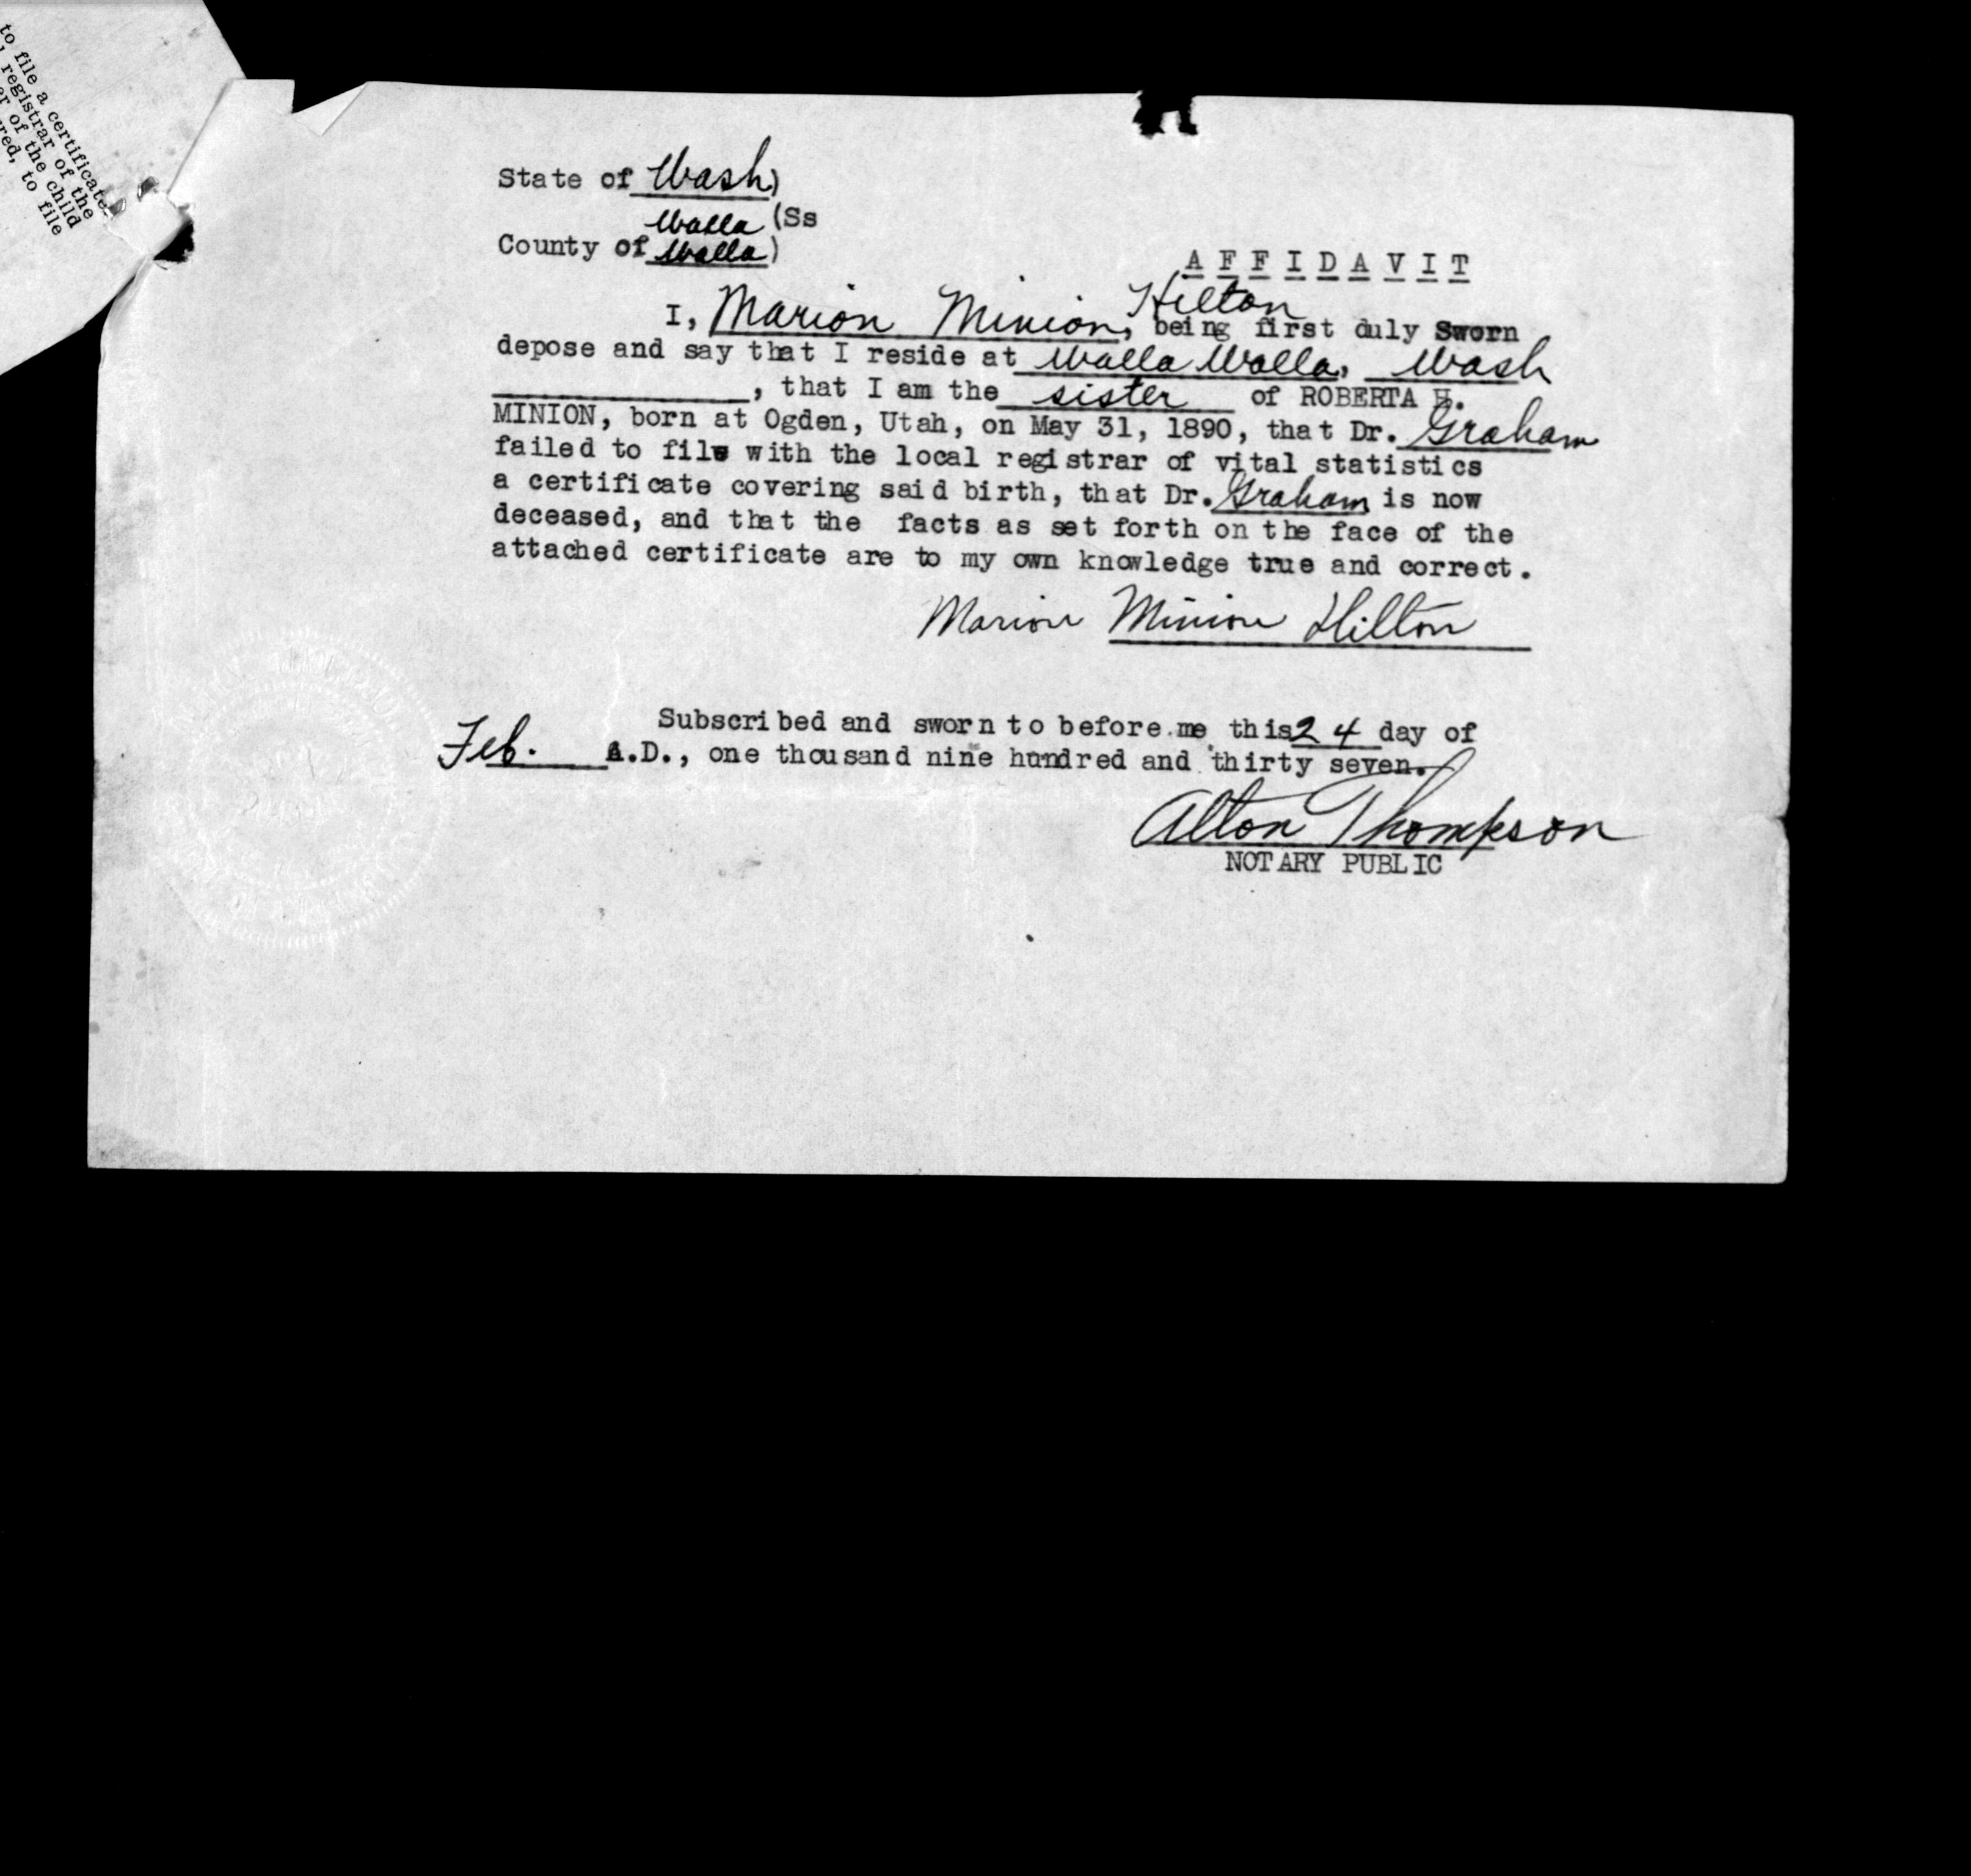 to file a certificate
registrar of the
er of the child
red, to file
State of Wash)
Walla (Ss
County of Walla)
AFFIDAVIT
Hilton
I, Marion Minion, being first duly Sworn
depose and say that I reside at Walla Walla, Wash
, that I am the sister of ROBERTA H.
MINION, born at Ogden, Utah, on May 31, 1890, that Dr. Graham
failed to file with the local registrar of vital statistics
a certificate covering said birth, that Dr. Graham is now
deceased, and that the facts as set forth on the face of the
attached certificate are to my own knowledge true and correct.
Marion Minion Hilton
Subscribed and sworn to before me this 24 day of
Feb. A.D., one thousand nine hundred and thirty seven.
Alton Thompson
NOTARY PUBLIC